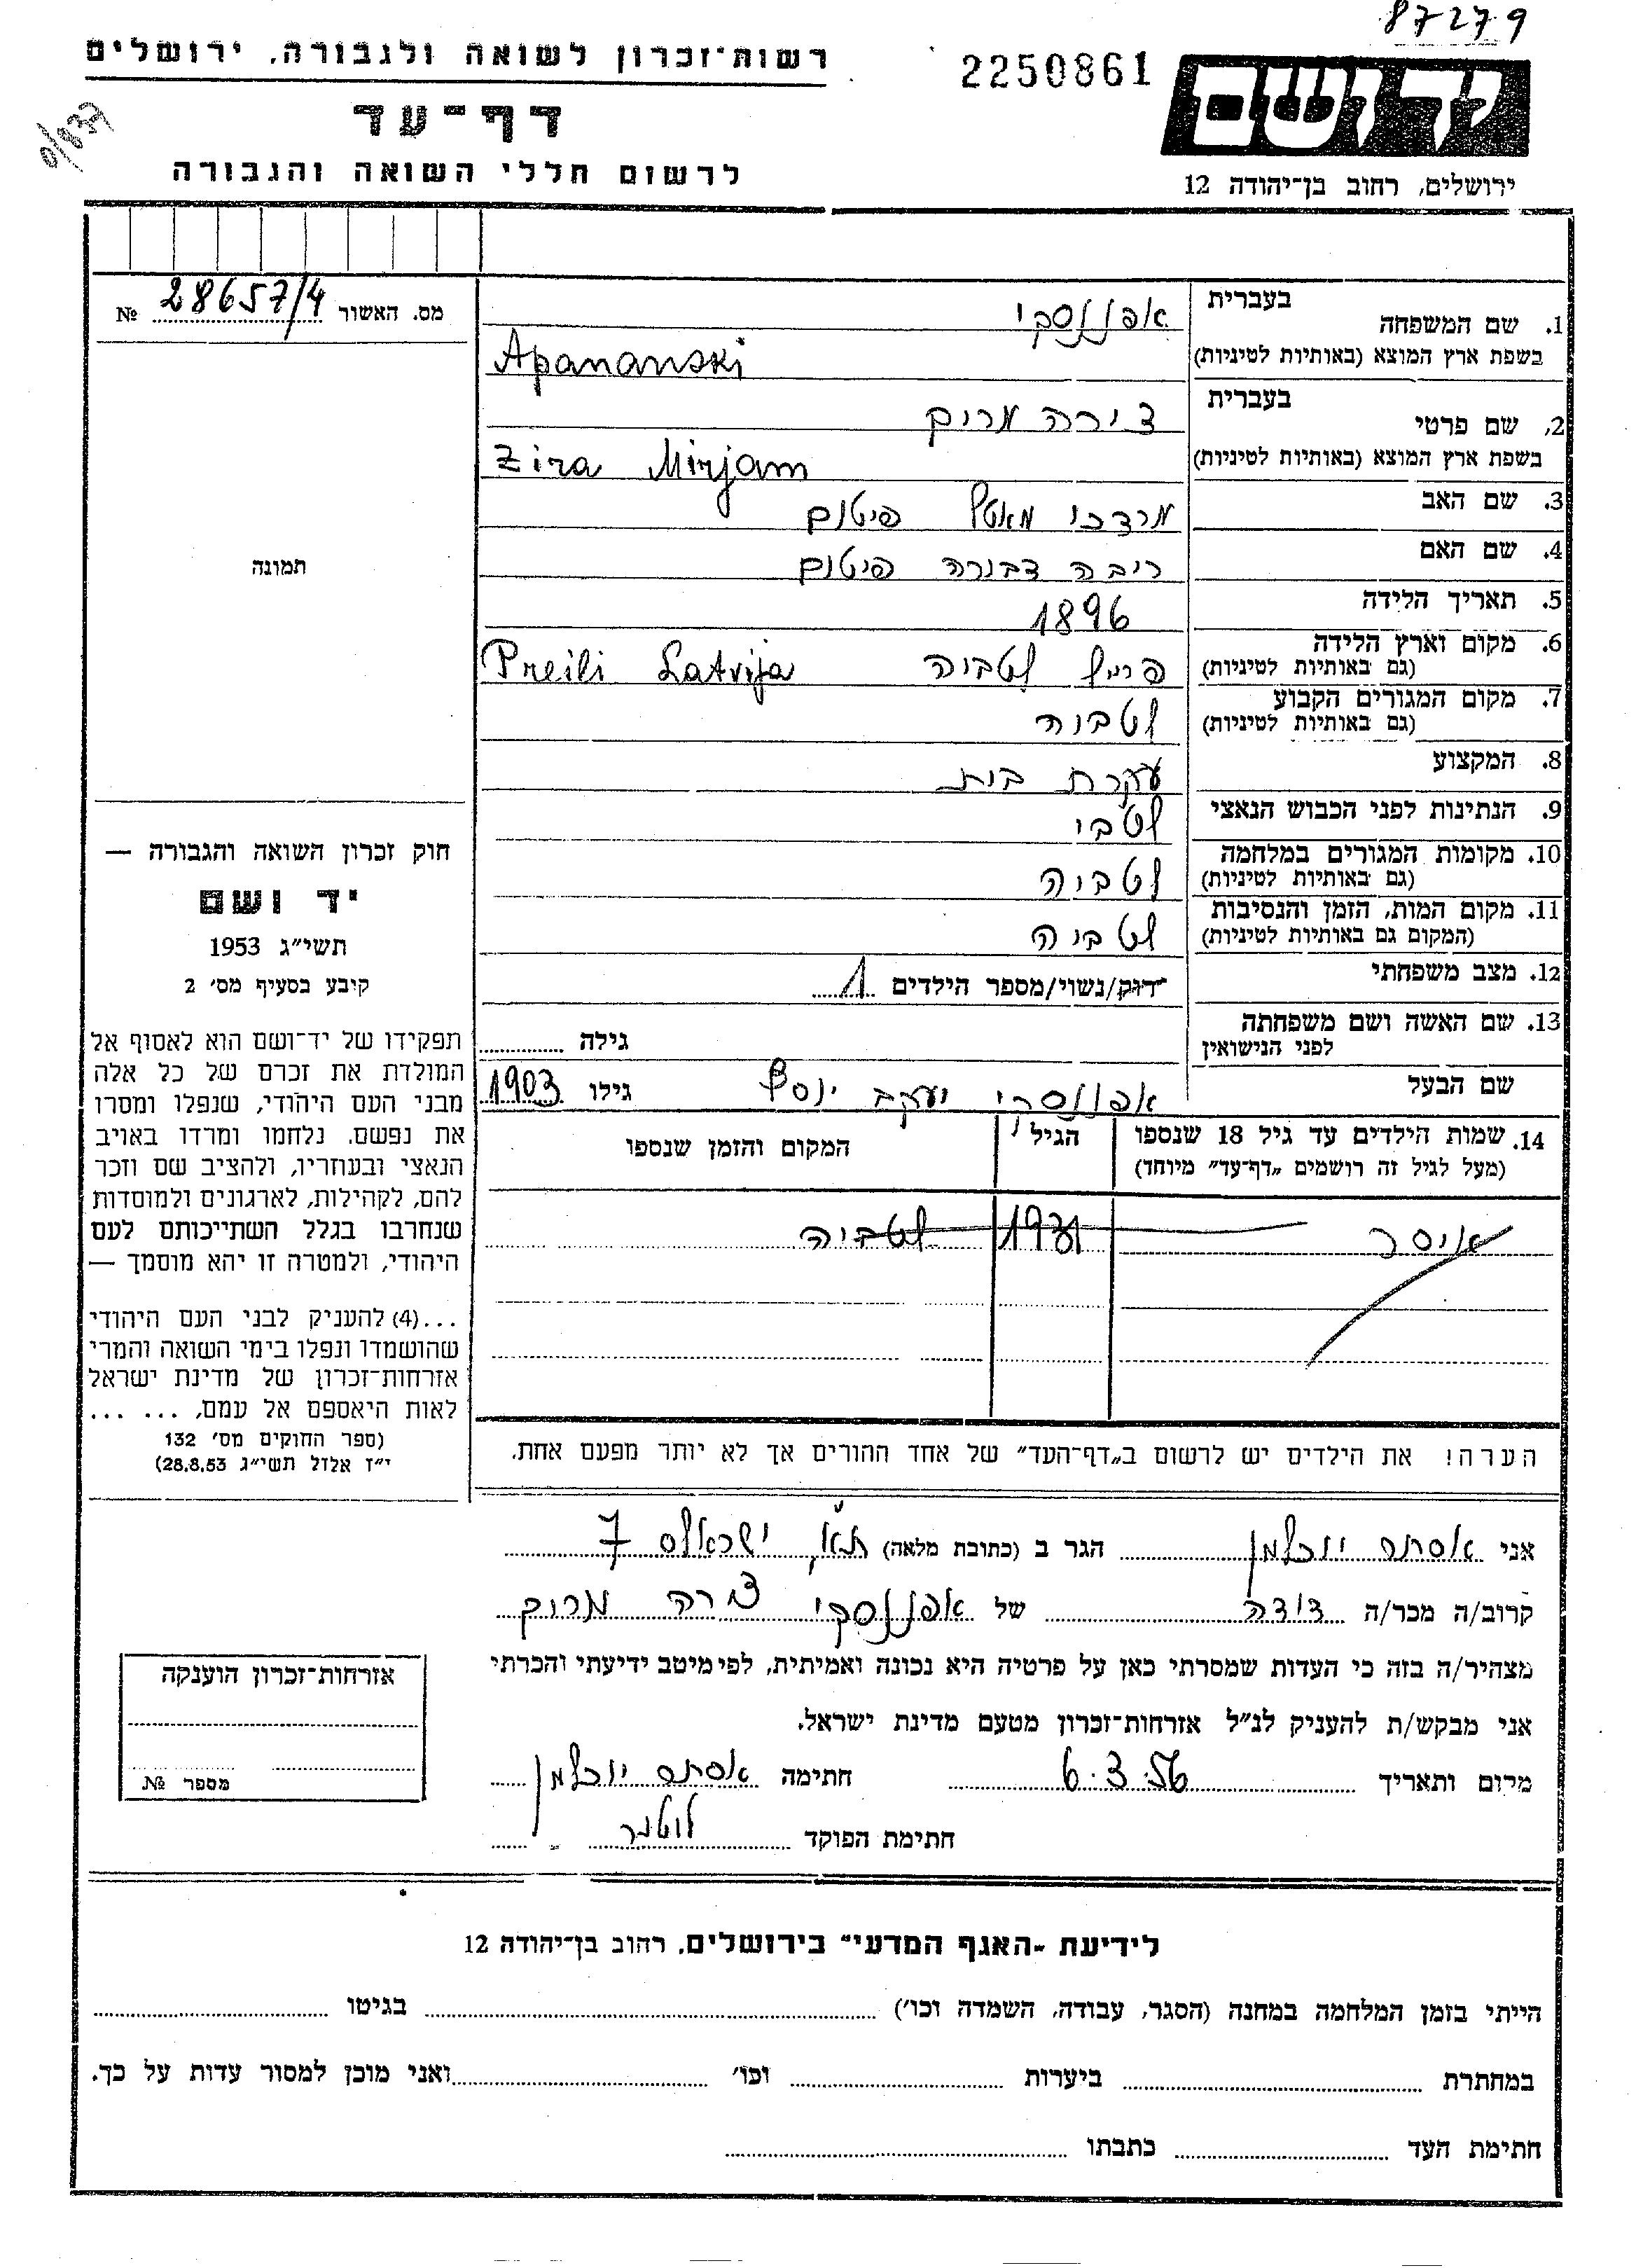 87279
רשות־זכרון לשואה ולגבורה, ירושלים
2250861
יד ושם
דף־עד
לרשום חללי השואה והגבורה
ירושלים, רחוב בן־יהודה 12
מס. האשור 28657/4 №
1. שם המשפחה בעברית אפננסקי
בשפת ארץ המוצא (באותיות לטיניות) Apananski
2. שם פרטי בעברית צירה מרים
בשפת ארץ המוצא (באותיות לטיניות) Zira Mirjam
3. שם האב מרדכי פיטום
4. שם האם ריבה דבורה פיטום
5. תאריך הלידה 1896
6. מקום וארץ הלידה
(גם באותיות לטיניות) פרייל לטביה Preili Latvija
7. מקום המגורים הקבוע
(גם באותיות לטיניות) לטביה
8. המקצוע עקרת בית
9. הנתינות לפני הכבוש הנאצי לטבי
10. מקומות המגורים במלחמה
(גם באותיות לטיניות) לטביה
11. מקום המות, הזמן והנסיבות
(המקום גם באותיות לטיניות) לטביה
12. מצב משפחתי רווק/נשוי/מספר הילדים 1
13. שם האשה ושם משפחתה
לפני הנישואין גילה
שם הבעל אפננסקי יעקב יוסף גילו 1903
14. שמות הילדים עד גיל 18 שנספו
(מעל לגיל זה רושמים „דף־עד” מיוחד)
הגיל
המקום והזמן שנספו
איסר 1931 לטביה
הערה! את הילדים יש לרשום ב„דף־העד” של אחד ההורים אך לא יותר מפעם אחת.
תמונה
חוק זכרון השואה והגבורה —
יד ושם
תשי״ג 1953
קיבע בסעיף מס׳ 2
תפקידו של יד־ושם הוא לאסוף אל
המולדת את זכרם של כל אלה
מבני העם היהודי, שנפלו ומסרו
את נפשם, נלחמו ומרדו באויב
הנאצי ובעוזריו, ולהציב שם וזכר
להם, לקהילות, לארגונים ולמוסדות
שנחרבו בגלל השתייכותם לעם
היהודי, ולמטרה זו יהא מוסמך —
...(4) להעניק לבני העם היהודי
שהושמדו ונפלו בימי השואה והמרי
אזרחות־זכרון של מדינת ישראל
לאות היאספם אל עמם, ... ...
(ספר החוקים מס׳ 132
י״ז אלול תשי״ג 28.8.53)
אני אסתר יוכלמן הגר ב (כתובת מלאה) ת״א, ישראלס 7
קרוב/ה מכר/ה דודה של אפננסקי צירה מרים
מצהיר/ה בזה כי העדות שמסרתי כאן על פרטיה היא נכונה ואמיתית, לפי מיטב ידיעתי והכרתי
אני מבקש/ת להעניק לנ״ל אזרחות־זכרון מטעם מדינת ישראל.
מקום ותאריך 6.3.56 חתימה אסתר יוכלמן
חתימת הפוקד
אזרחות־זכרון הוענקה
מספר №
לידיעת „האגף המדעי” בירושלים, רחוב בן־יהודה 12
הייתי בזמן המלחמה במחנה (הסגר, עבודה, השמדה וכו׳) בגיטו
במחתרת ביערות וכו׳ ואני מוכן למסור עדות על כך.
חתימת העד כתבתו